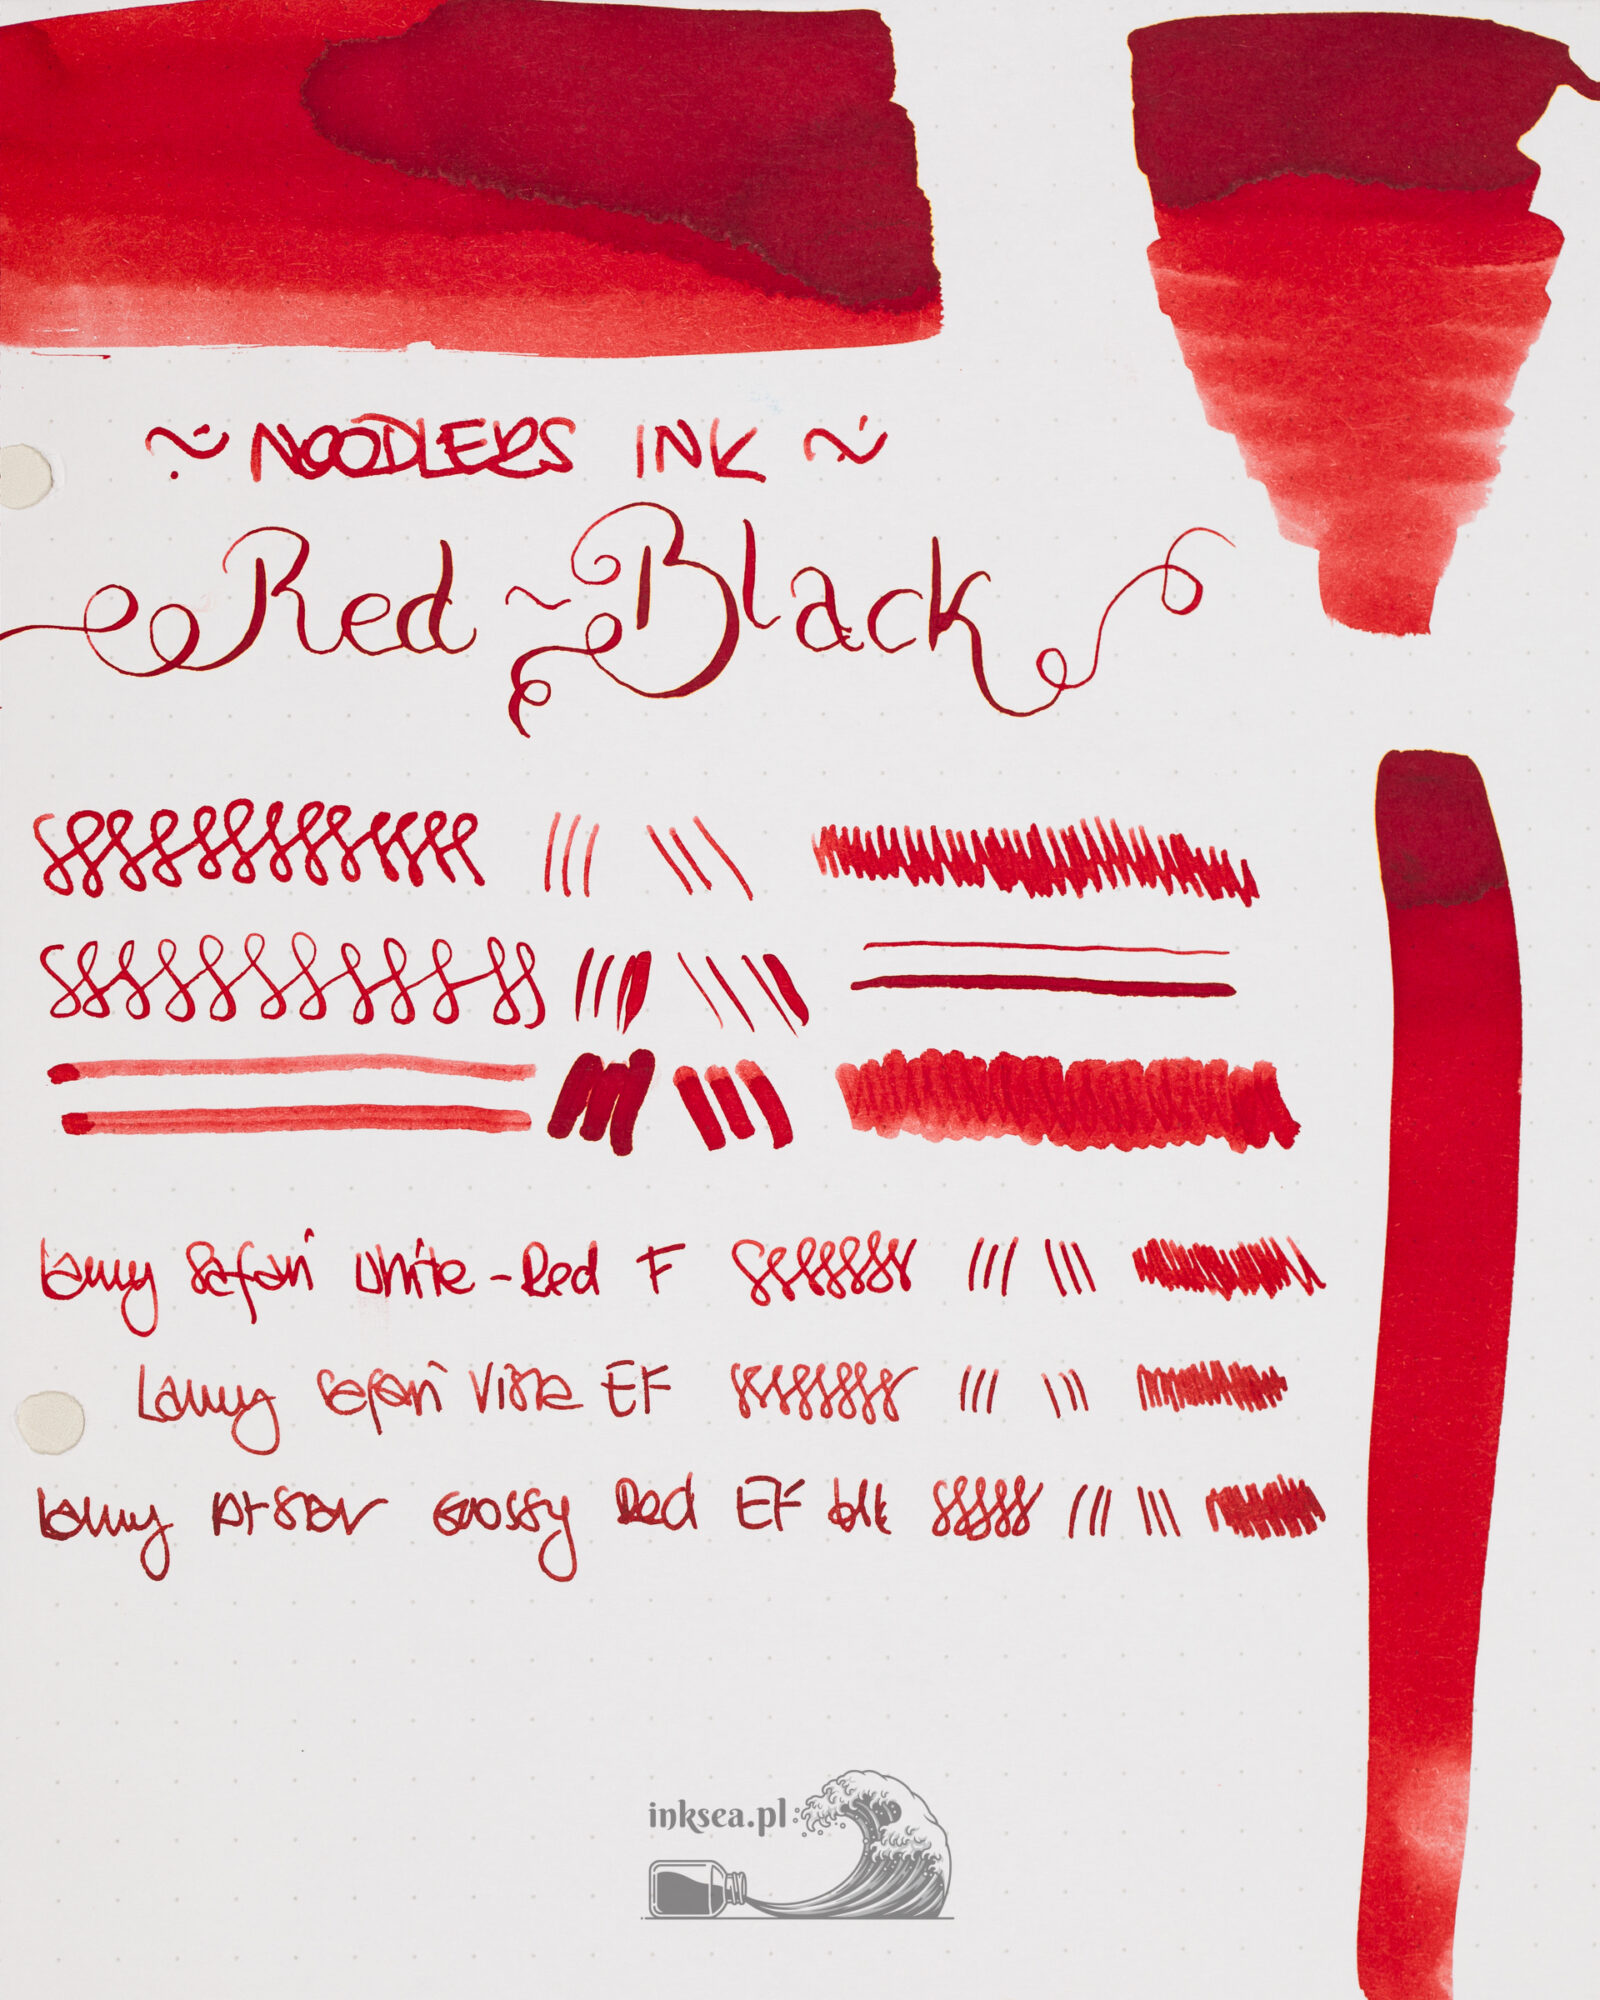 ~ NOODLERS INK ~
Red ~ Black
Lamy Safari White-Red F
Lamy Safari Vista EF
Lamy Al-Star Glossy Red EF blk
inksea.pl